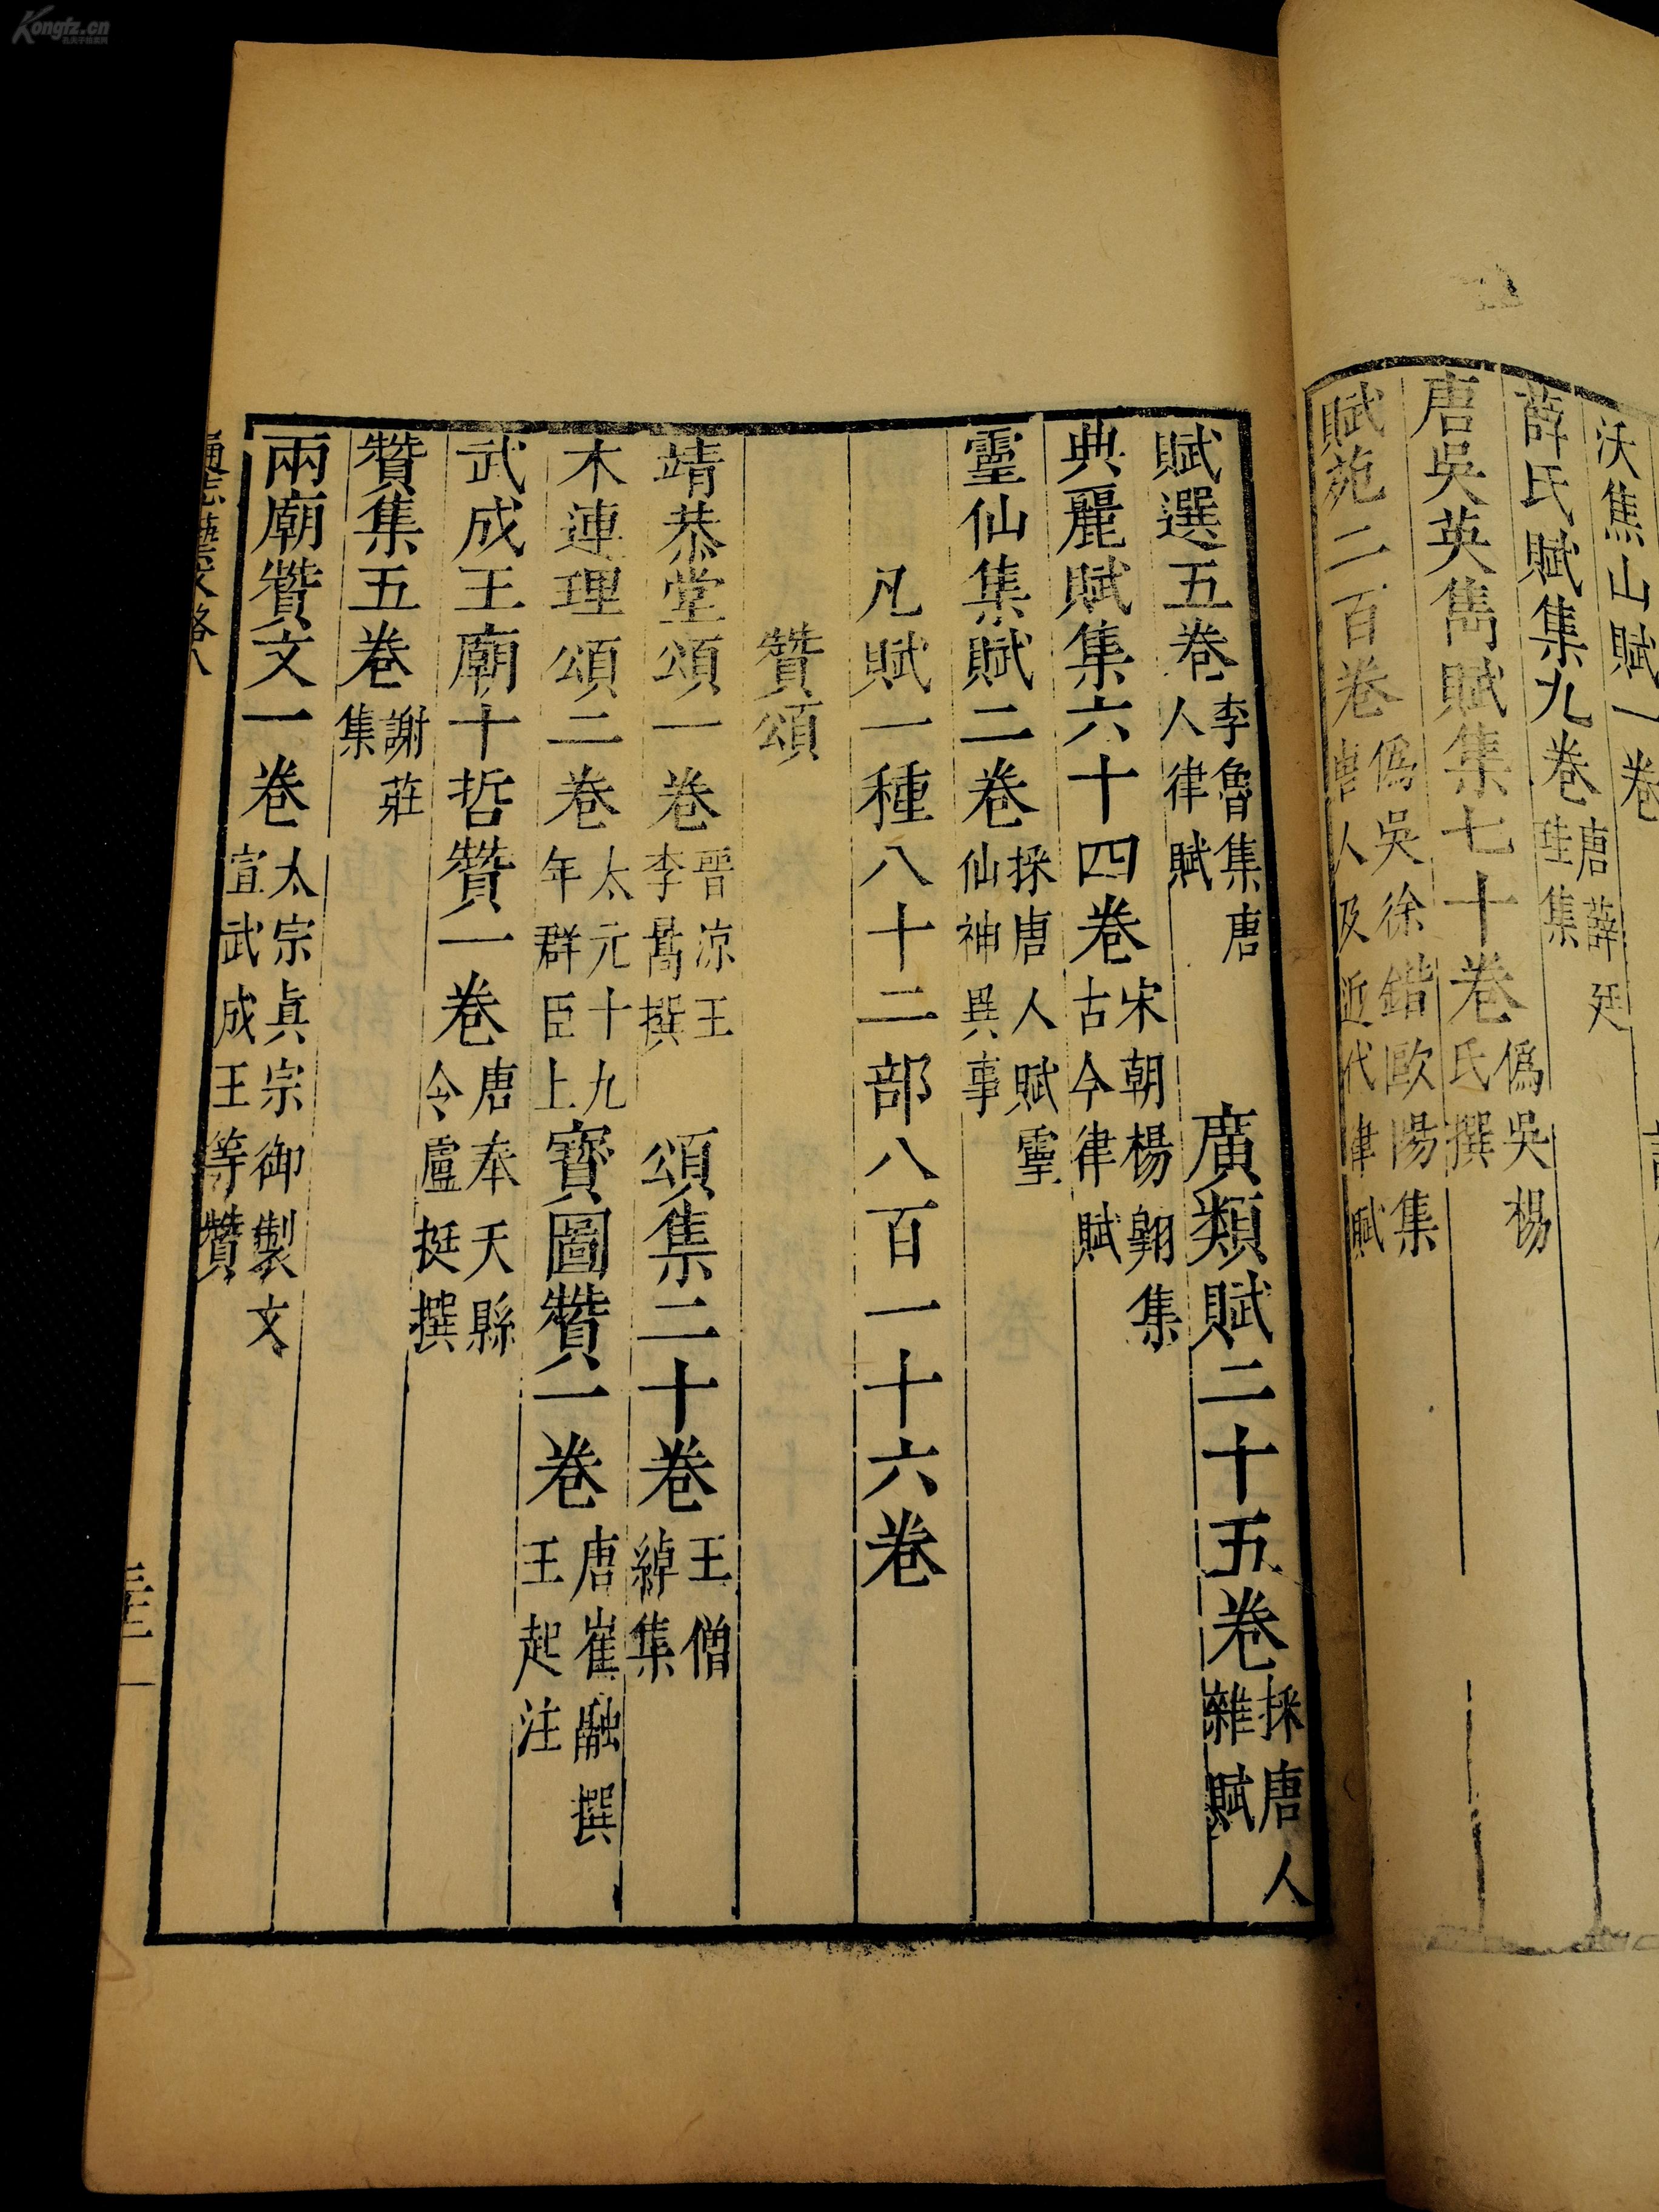 沃焦山賦一卷
薛氏賦集九卷唐薛廷珪集
唐吳英雋賦集七十卷僞吳楊氏撰
賦苑二百卷僞吳徐鍇歐陽集唐人及近代律賦
賦選五卷李魯集唐人律賦 廣類賦二十五卷採唐人雜賦
典麗賦集六十四卷宋朝楊翱集古今律賦
靈仙集賦二卷採唐人賦靈仙神異事
凡賦一種八十二部八百一十六卷
贊頌
靖恭堂頌一卷晉凉王李暠撰 頌集二十卷王僧綽集
木連理頌二卷太元十九年群臣上 寳圖贊一卷唐崔融撰王起注
武成王廟十哲贊一卷唐奉天縣令盧挺撰
贊集五卷謝莊集
兩廟贊文一卷太宗眞宗御製文宣武成王等贊
通志藝文略八
三十二
Kongfz.cn
孔夫子舊書网